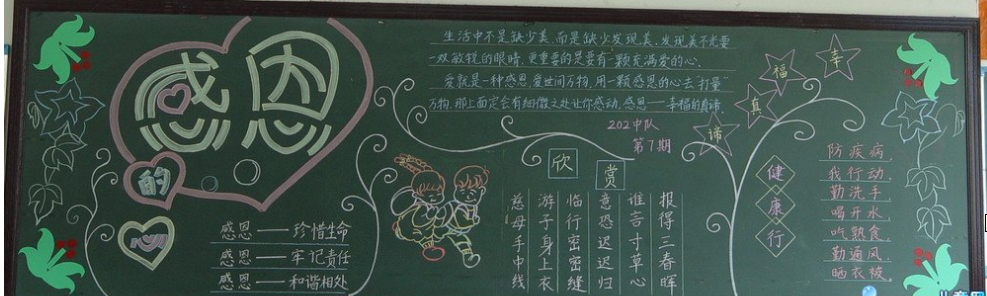 感恩
的
心
感恩——珍惜生命
感恩——牢记责任
感恩——和谐相处
生活中不是缺少美,而是缺少发现美,发现美不光要
一双敏锐的眼睛,更重要的是要有一颗充满爱的心.
爱就是一种感恩,爱世间万物,用一颗感恩的心去打量
万物,那上面定会有细微之处让你感动,感恩——幸福的真谛
202中队
第7期
幸福真谛
欣赏
慈母手中线
游子身上衣
临行密密缝
意恐迟迟归
谁言寸草心
报得三春晖
健康行
防疾病,
我行动,
勤洗手,
喝开水,
吃熟食,
勤通风,
晒衣被.